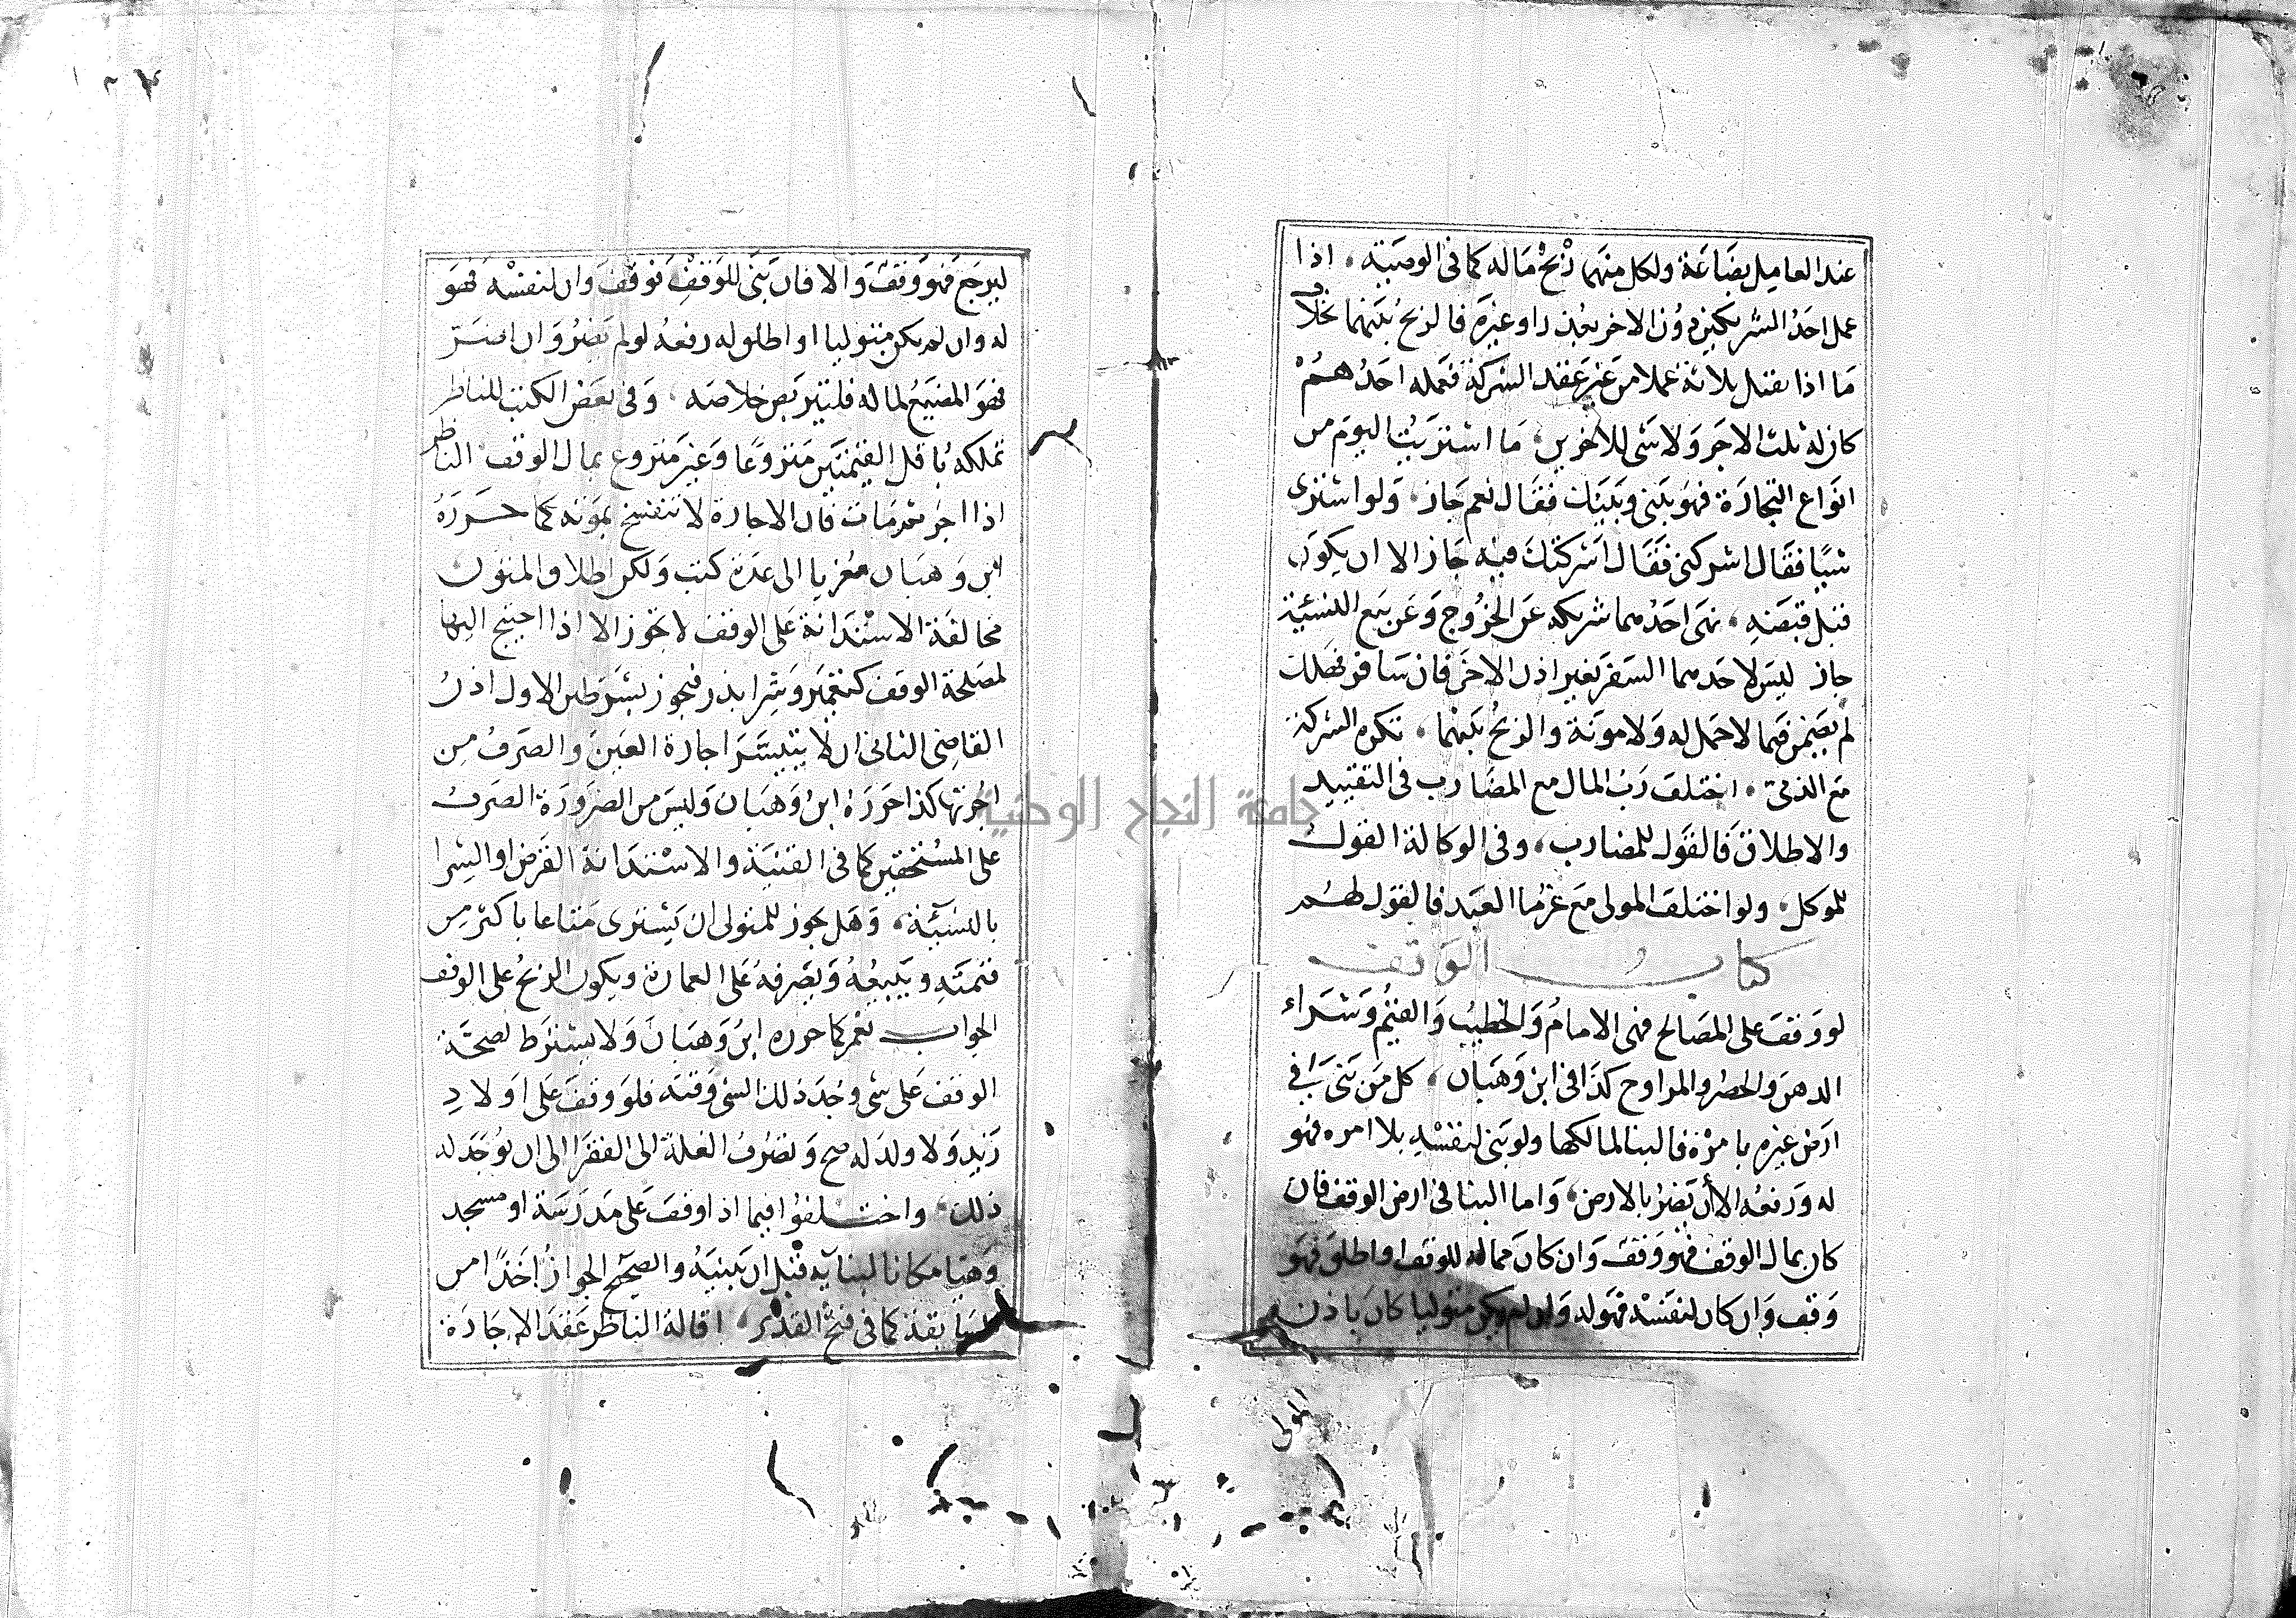 عند العامل بضاعة ولكل منهما ربح ماله كما فى الوصية، اذا
عمل احد الشريكين دون الاخر بعذر او غيره فالربح بينهما بخلاف
ما اذا تقبل ثلاثة عملا من غير عقد الشركة فعمله احدهم
كان له ثلث الاجر ولا شى للاخرين، ما اشتريت اليوم من
انواع التجارة فهو بينى وبينك فقال نعم جاز، ولو اشترى
شيا فقال اشركنى فقال اشركتك فيه جاز الا ان يكون
قبل قبضه، نهى احدهما شريكه عن الخروج وعن بيع النسئية
جاز ليس لاحدهما السفر بغير اذن الاخر فان سافر فهلك
لم يضمن فيما لا حمل له ولا مونة والربح بينهما، تكره الشركة
مع الذمى، اختلف رب المال مع المضارب فى التقييد
والاطلاق فالقول للمضارب، وفى الوكالة القول
للموكل، ولو اختلف المولى مع غرما العبد فالقول لهم
كتاب الوقف
لو وقف على المصالح فهى الامام والخطيب والقيم وشراء
الدهن والحصر والمراوح كذا فى ابن وهبان، كل من بنى فى
ارض غيره بامره فالبنا لمالكها ولو بنى لنفسه بلا امره فهو
له ورفعه الا أن يضر بالارض، واما البنا فى ارض الوقف فان
كان بمال الوقف فهو وقف وان كان مماله للوقف او اطلق فهو
وقف وان كان لنفسه فهو له وان لم يكن متوليا كان باذن
المولى
ليرجع فهو وقف والا فان بنى للوقف فوقف وان لنفسه فهو
له وان لم يكن متوليا او اطلق له رفعه لو لم يضر وان اضر
فهو المضيع لماله فليتربص خلاصه، وفى بعض الكتب للناظر
تملكه باقل القيمتين منزوعا وغير منزوع بمال الوقف، الناظر
اذا اجر ثم مات فان الاجارة لا تنفسخ بموته كما حرره
ابن وهبان معزيا الى عدة كتب ولكن اطلاق المتون
مخالفة الاستدانة على الوقف لا تجوز الا اذا احتيج اليها
لمصلحة الوقف كتعمير وشرا بذر فيجوز بشرطين الاول اذن
القاضى الثانى ان لا يتيسر اجارة العين والصرف من
اجرتها كذا حرره ابن وهبان وليس من الضرورة الصرف
على المستحقين كما فى القنية والاستدانة القرض او الشرا
بالنسيئة، وهل يجوز للمتولى ان يشترى متاعا باكثر من
قيمته ويبيعه ويصرفه على العمارة ويكون الربح على الوقف
الجواب نعم كما حرره ابن وهبان ولا يشترط لصحة
الوقف على شى وجد ذلك الشى وقته فلو وقف على اولاد
زيد ولا ولد له صح وتصرف الغلة الى الفقرا الى ان يوجد له
ذلك، واختلفوا فيما اذا وقف على مدرسة او مسجد
وهيا مكانا لبنايه قبل ان يبنيه والصحيح الجواز اخذا من
السابقة كما فى فتح القدير، اقالة الناظر عقد الاجارة
جامعة النجاح الوطنية